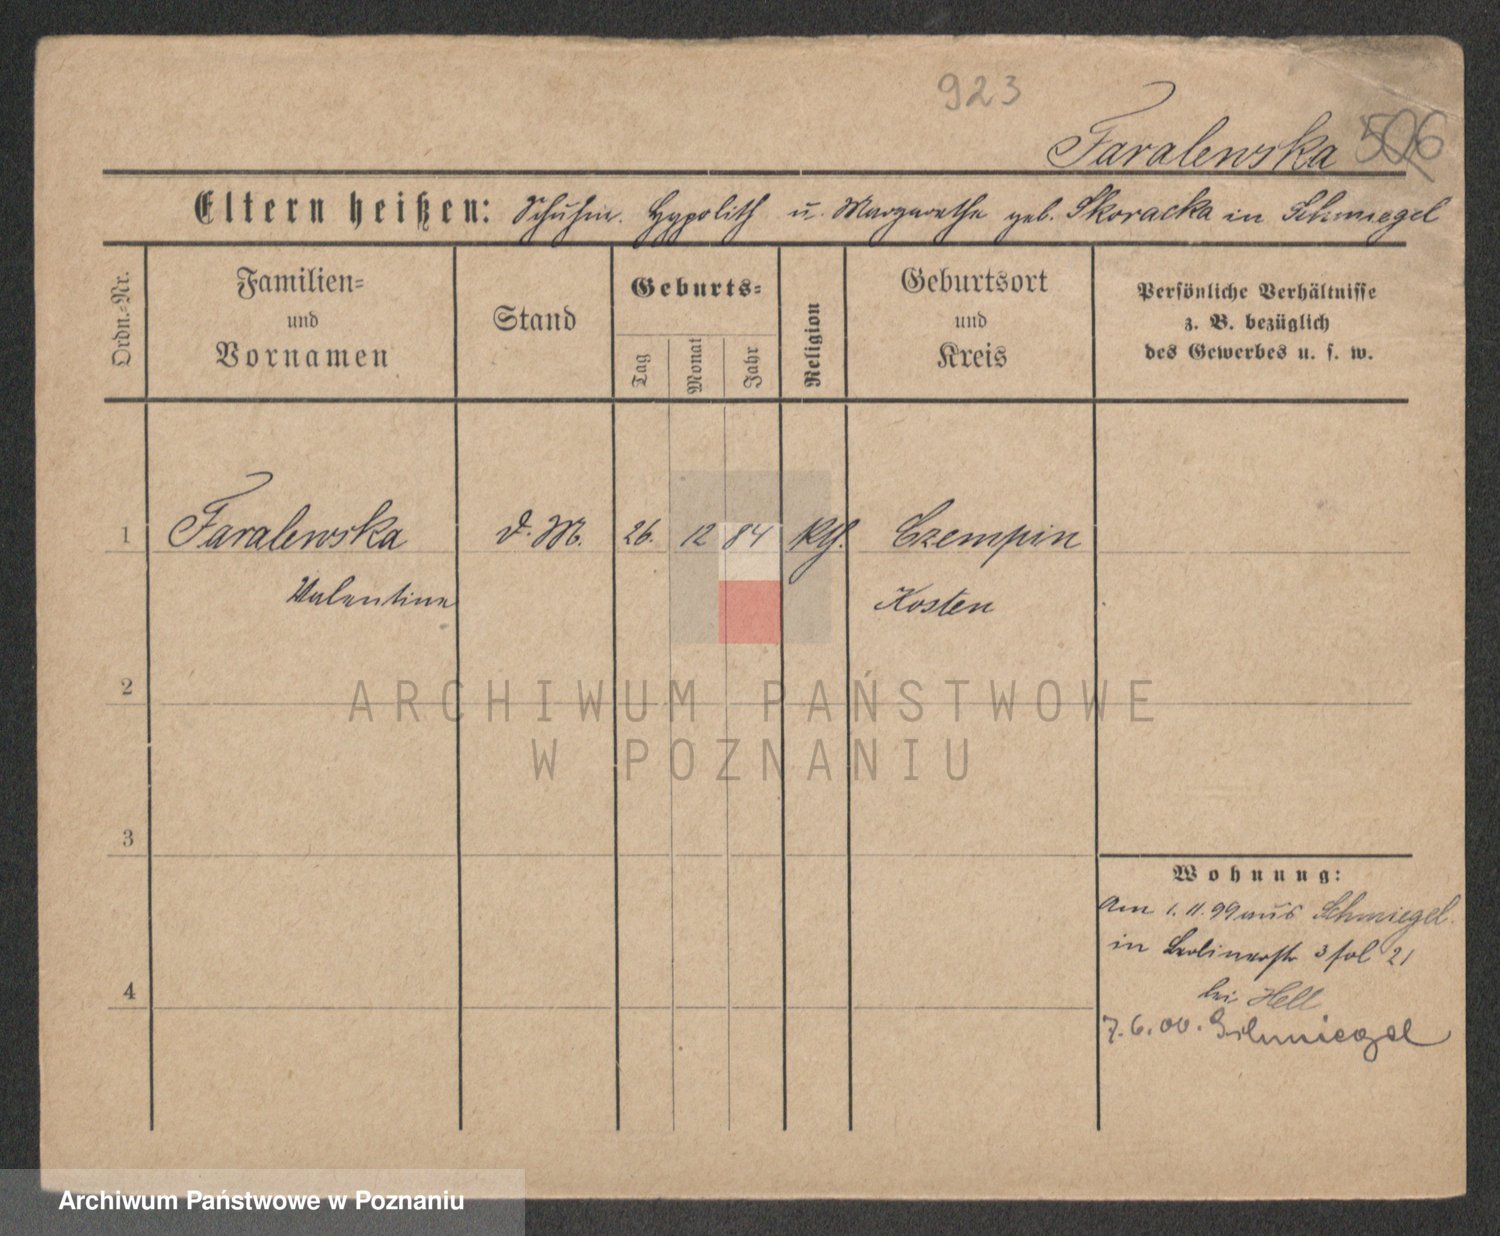 923
Faralewska 506
Eltern heißen: Schuhm. Hypolith u. Margarethe geb. Skoracka in Schmiegel
Ordn.-Nr.
Familien-
und
Vornamen
Stand
Geburts-
Tag
Monat
Jahr
Religion
Geburtsort
und
Kreis
Persönliche Verhältnisse
z. B. bezüglich
des Gewerbes u. s. w.
1 Faralewska d. M. 26. 12 84 kth. Czempin
Valentine Kosten
2
ARCHIWUM PAŃSTWOWE
W POZNANIU
3
Wohnung:
Am 1. 11. 99 aus Schmiegel
in Berlinerstr 3 fol 21
4
bei Hell
7.6.00. Schmiegel
Archiwum Państwowe w Poznaniu